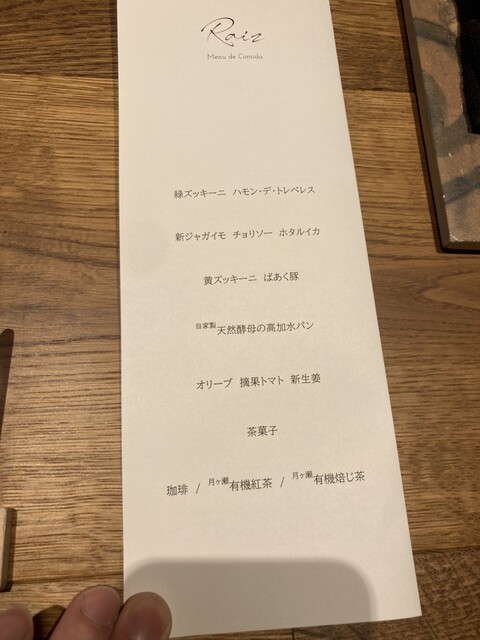 Raiz
Menu de Comida
緑ズッキーニ ハモン・デ・トレベレス
新ジャガイモ チョリソー ホタルイカ
黄ズッキーニ ばあく豚
自家製天然酵母の高加水パン
オリーブ 摘果トマト 新生姜
茶菓子
珈琲 / 月ヶ瀬有機紅茶 / 月ヶ瀬有機焙じ茶